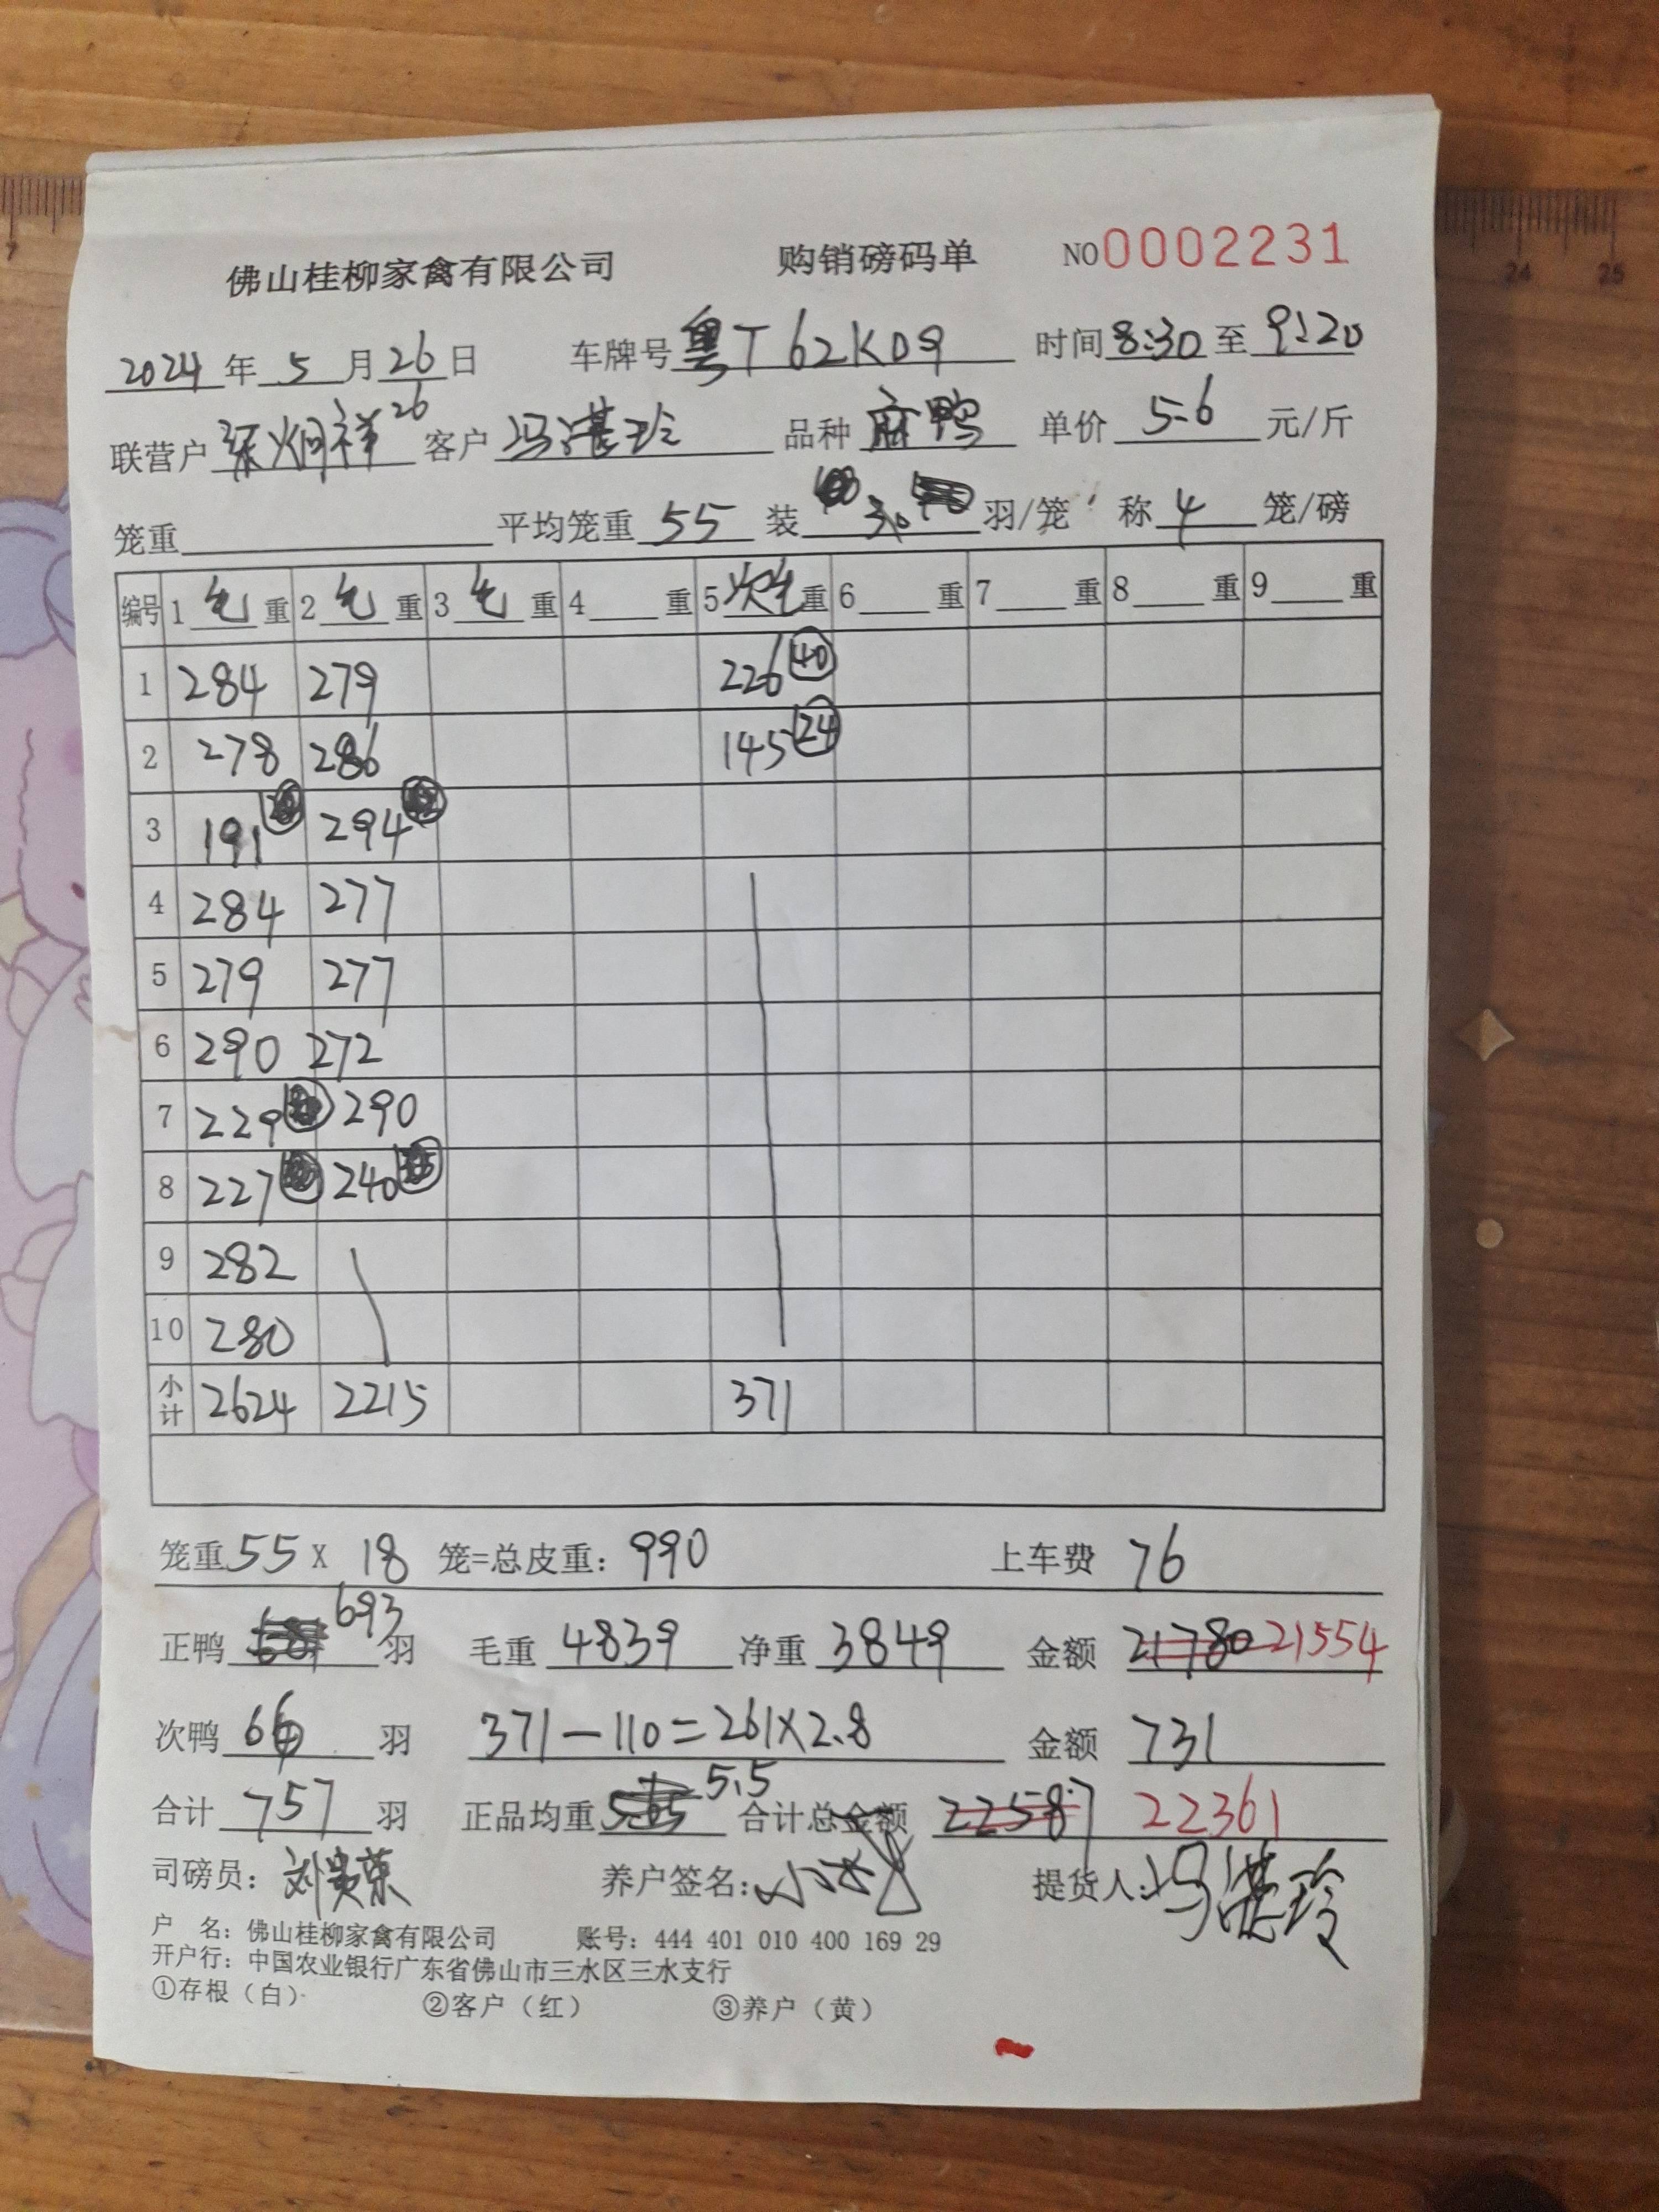 佛山桂柳家禽有限公司 购销磅码单 NO0002231
2024年5月26日 车牌号 粤T62K09 时间 8:30 至 9:20
联营户 炯祥26 客户 冯湛玲 品种 麻鸭 单价 5.6 元/斤
笼重 平均笼重 55 装 30 羽/笼 称 4 笼/磅
编号 1 毛 重 2 毛 重 3 毛 重 4 重 5 次毛 重 6 重 7 重 8 重 9 重
1 284 279 226 40
2 278 286 145 24
3 191 294
4 284 277
5 279 277
6 290 272
7 229 290
8 227 240
9 282
10 280
小计 2624 2215 371
笼重 55 X 18 笼=总皮重: 990 上车费 76
正鸭 693 羽 毛重 4839 净重 3849 金额 21780 21554
次鸭 64 羽 371-110=261×2.8 金额 731
合计 757 羽 正品均重 5.5 合计总金额 22587 22361
司磅员: 刘贵荣 养户签名: 提货人: 冯湛玲
户 名: 佛山桂柳家禽有限公司 账号: 444 401 010 400 169 29
开户行: 中国农业银行广东省佛山市三水区三水支行
①存根(白) ②客户(红) ③养户(黄)